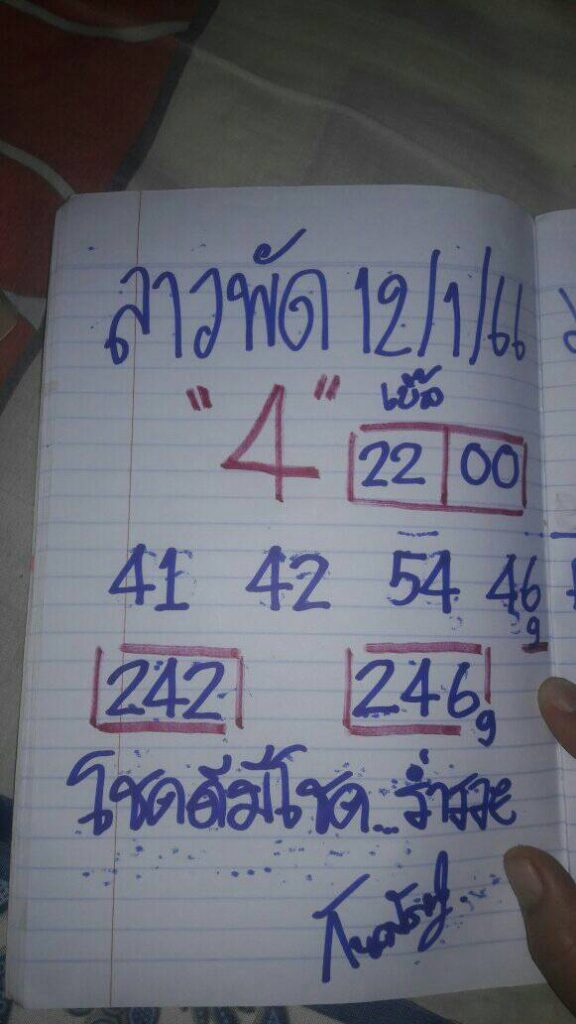 ลาวพัด 12/1/61
"4" เบิ้ล
22 00
41 42 54 46
9
242 246 9
โชคดีมีโชค... ร่ำรวย